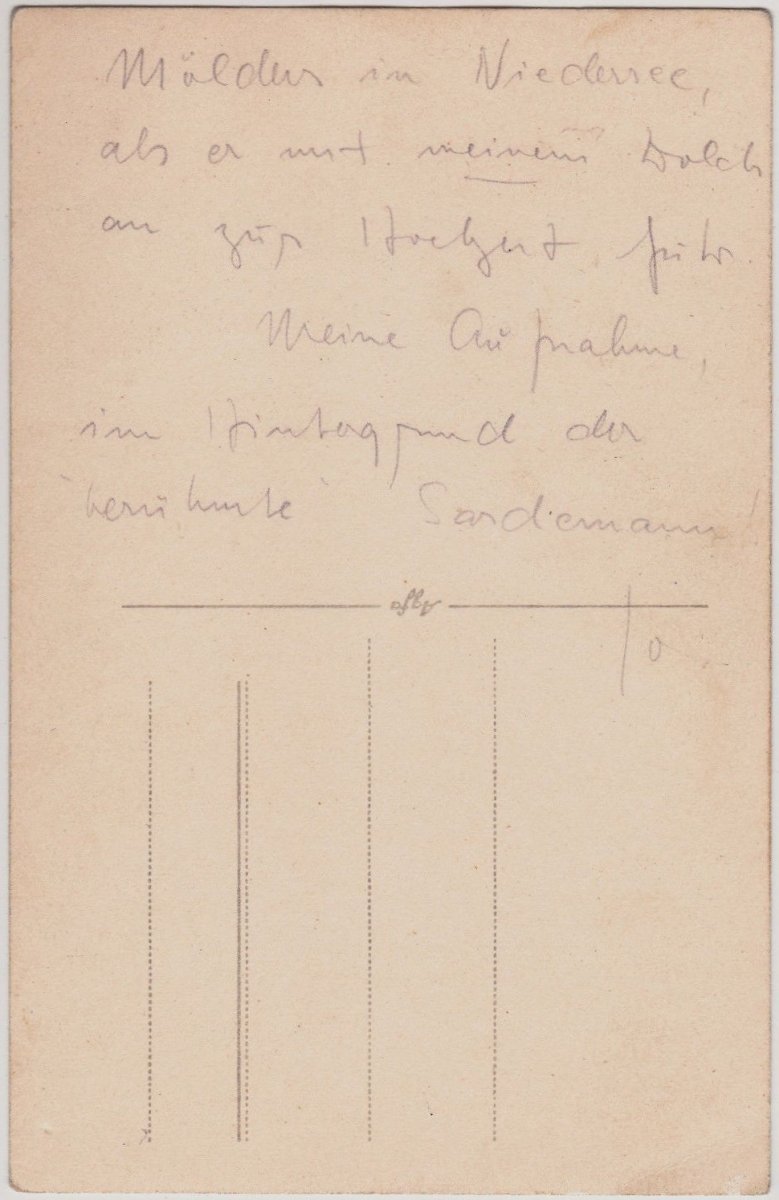 Mölders in Niedersee,
als er mit meinem Dolch
an zur Hochzeit fuhr.
Meine Aufnahme,
im Hintergrund der
"berühmte" Sardemann!